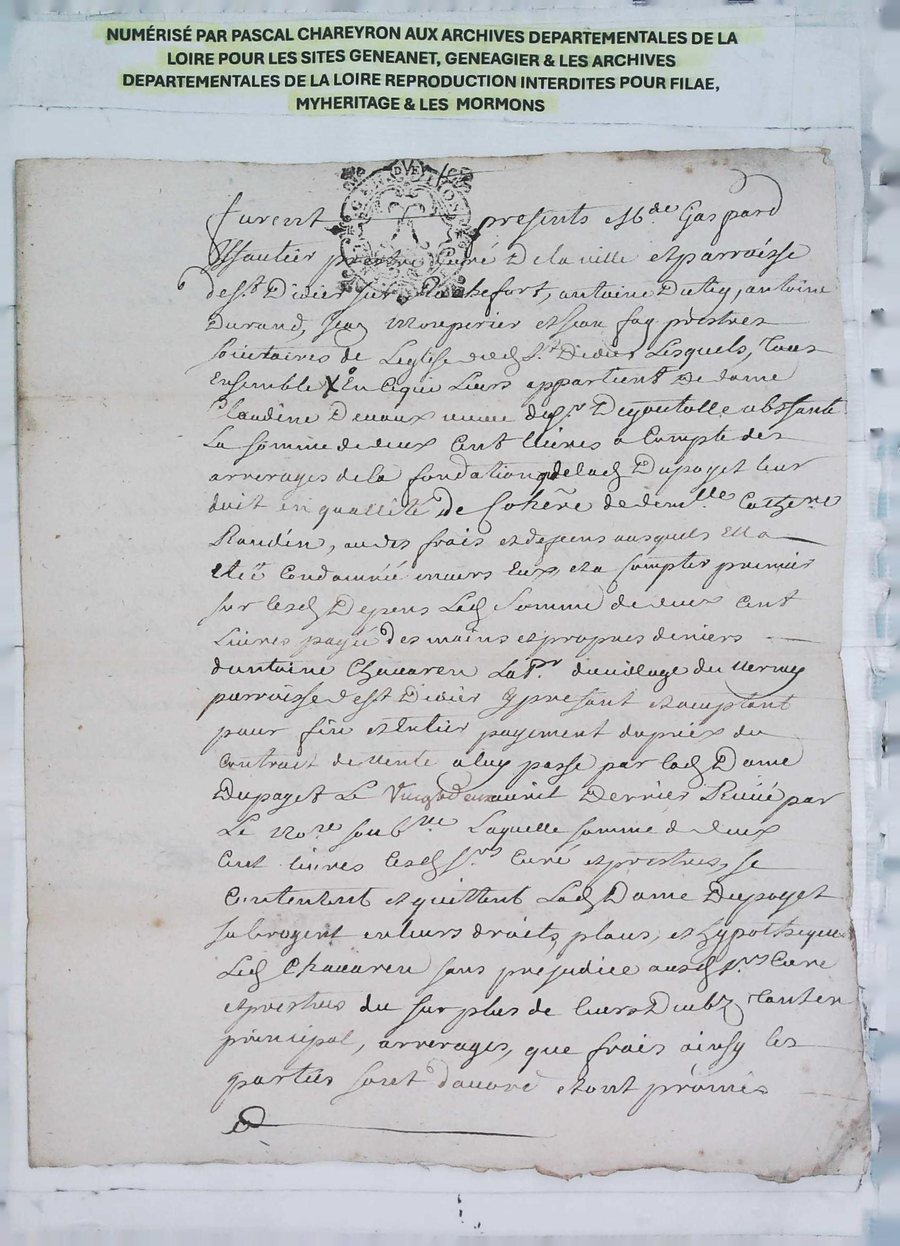 NUMÉRISÉ PAR PASCAL CHAREYRON AUX ARCHIVES DEPARTEMENTALES DE LA
LOIRE POUR LES SITES GENEANET, GENEAGIER & LES ARCHIVES
DEPARTEMENTALES DE LA LOIRE REPRODUCTION INTERDITES POUR FILAE,
MYHERITAGE & LES MORMONS
furent presents Gaspard
curé De la ville et parroisse
de st Didier sur Rochefort, antoine antoine
Durand, Jean et Jean fag prestres
societaires de Leglise st Didier Lesquels, tous
Ensemble En ce qui Leurs appartient De dame
Claudine absante
La somme de deux Cent Livres a Compte des
arrerages de la fondation que lad Dupoyet leur
doit en quallité De Cohere de dem.lle Cathe.ne
, et depens ausquels Ella
Condamnée envers Eux, et a Compter premier
sur Lesd Depens Lad somme de deux Cent
Livres payée Des mains et propres deniers
dantoine Chavaren La.r du village du
parroisse de st Didier Y present et acceptant
pour fin et Entier payement du prix du
Contrat de vente a luy passé par lad Dame
Dupoyet Le Vingt deux Dernier par
Le no.re soub.ne Laquelle somme de deux
Cent Livres Lesd s.rs Curé et prestres, se
Contentent et quittent Lad Dame Dupoyet
subrogent en leurs droits, et hypotheques
Led Chavaren sans prejudice ausd s.rs Curé
et prestres du sur plus de leurs tant en
principal, arrerages, que frais ainsy les
parties sont et ont promis